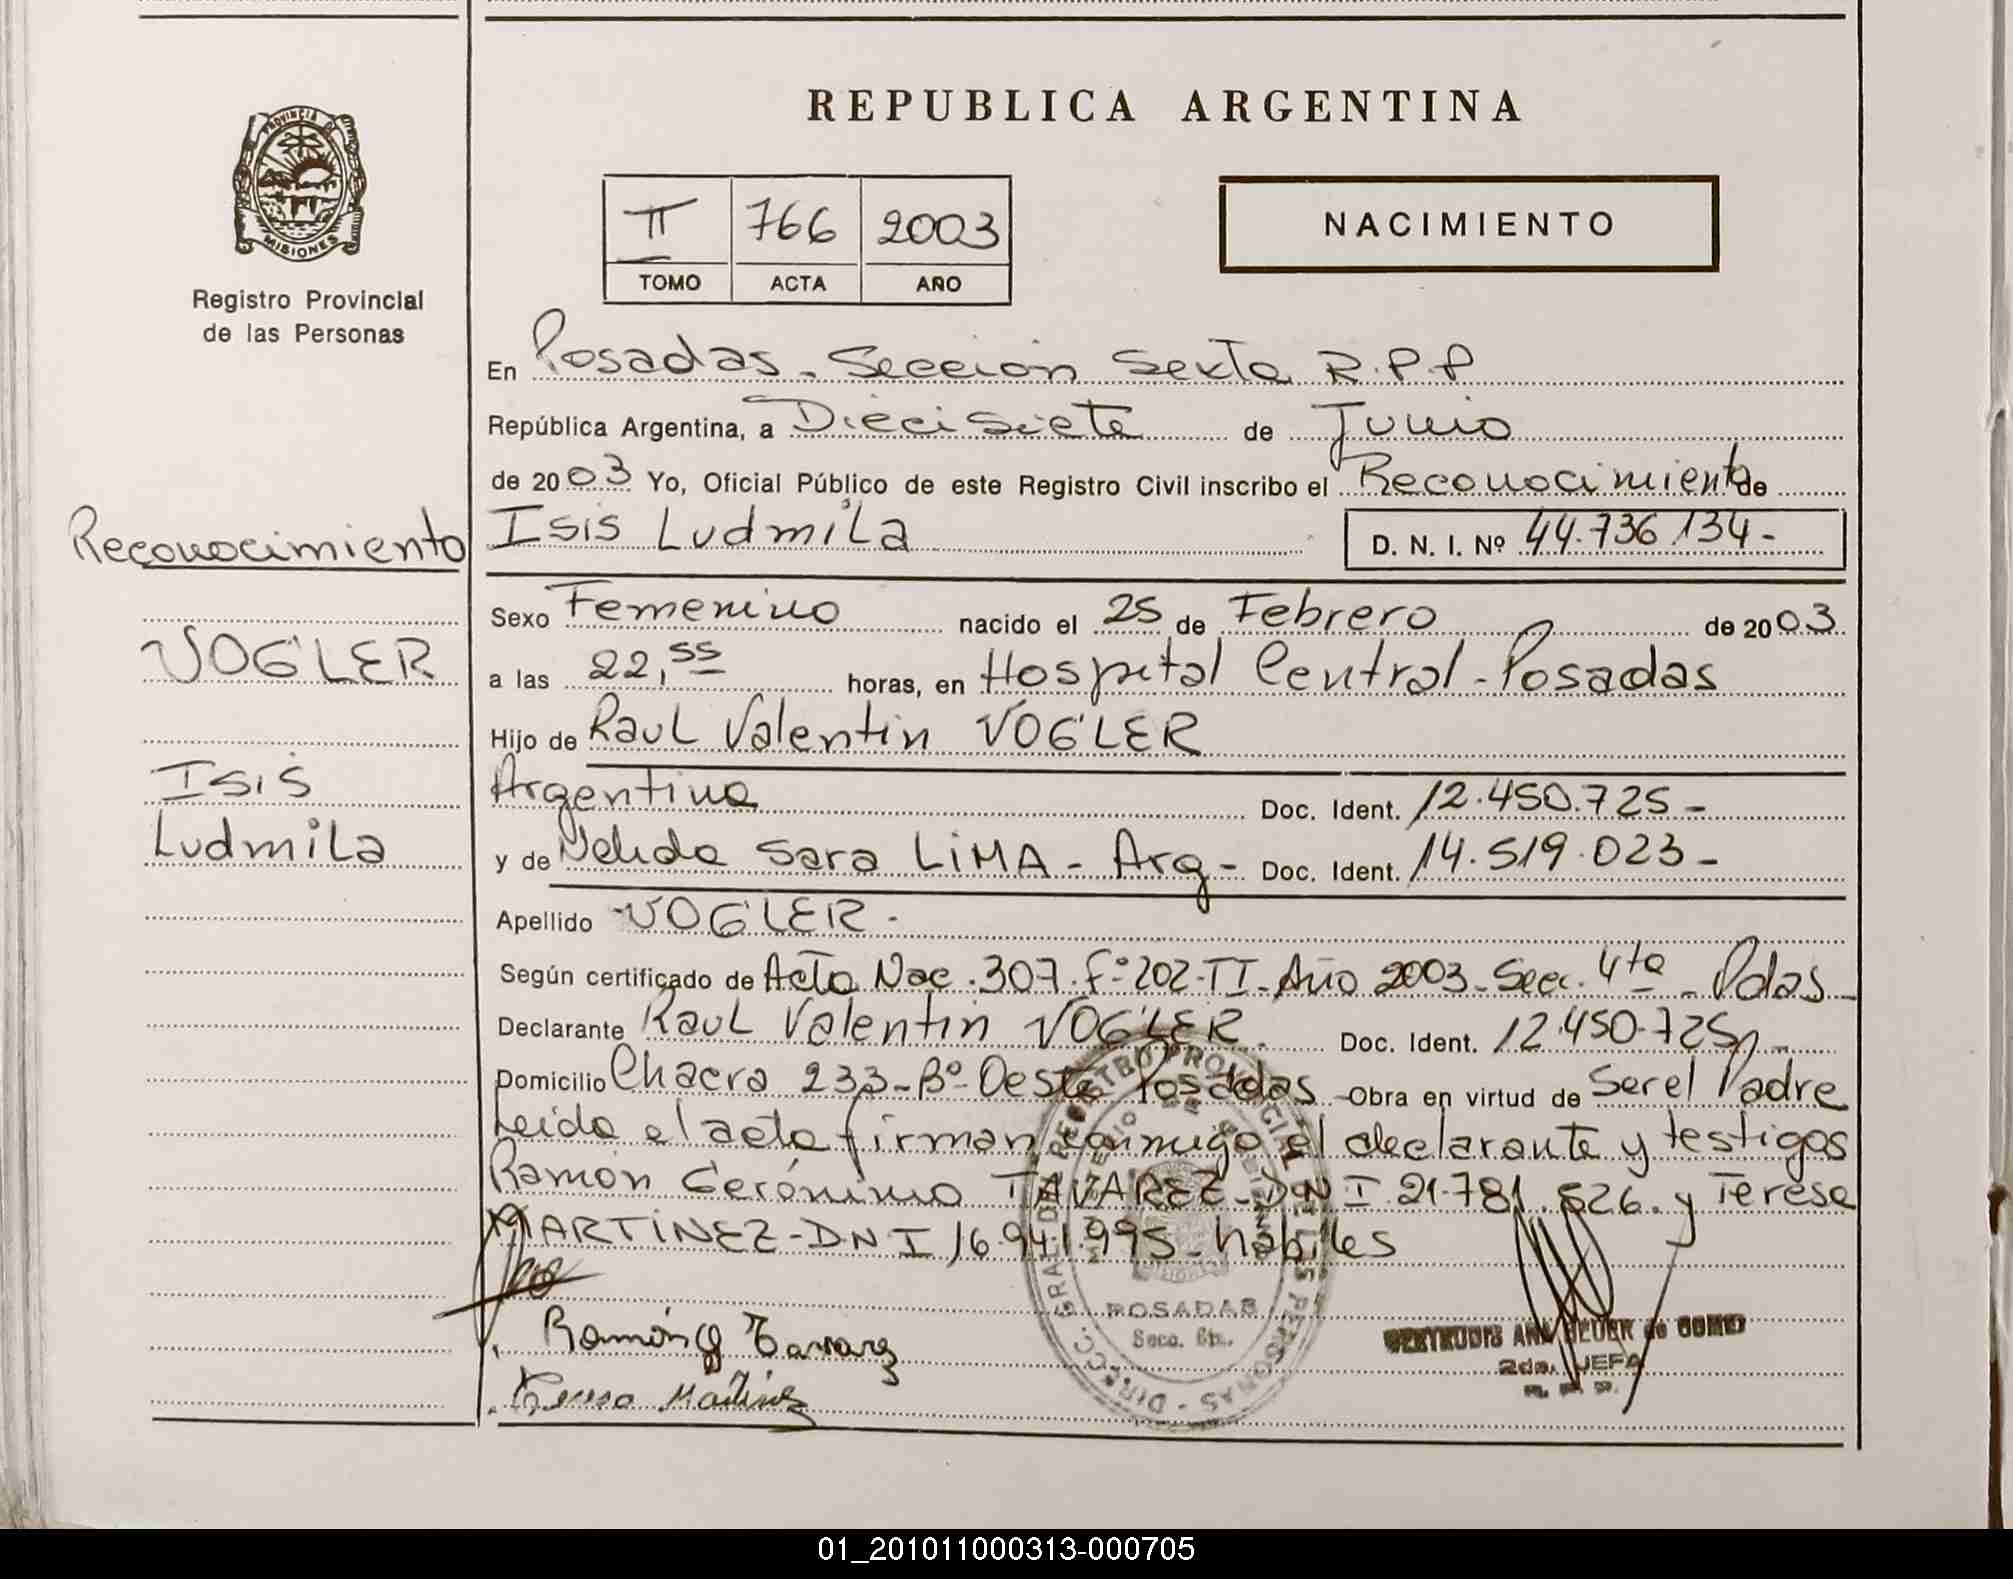 REPUBLICA ARGENTINA
PROVINCIA DE
MISIONES
Registro Provincial
de las Personas
II 766 2003
TOMO ACTA AÑO
NACIMIENTO
En Posadas - Sección Sexta R.P.P
República Argentina, a Diecisiete de Junio
de 2003 Yo, Oficial Público de este Registro Civil inscribo el Reconocimiento de
Isis Ludmila D. N. I. Nº 44.736.134-
Reconocimiento
VOGLER
Isis
Ludmila
Sexo Femenino nacido el 25 de Febrero de 2003
a las 22,55 horas, en Hospital Central - Posadas
Hijo de Raul Valentin VOGLER
Argentina Doc. Ident. 12.450.725-
y de Nelida Sara LiMA - Arg - Doc. Ident. 14.519.023-
Apellido -VOGLER-
Según certificado de Acta Nac. 307. Fº 202-TI-Año 2003-Secc. 4ta - Pdas
Declarante Raul Valentin VOGLER. Doc. Ident. 12.450.725-
Domicilio Chacra 233-Bº-Oeste Posadas Obra en virtud de Ser el Padre
Leida el acta firman conmigo el declarante y testigos
Ramón Gerónimo TAVAREZ-DNI 21.781.526. y Teresa
MARTINEZ-DNI 16.941.995-habiles
Ramón G Tavarez
Teresa Martinez
DIRECC. GRAL. DE REGISTRO PROVINCIAL DE LAS PERSONAS
POSADAS
Secc. 6ta.
GERTRUDIS ANA de GOMEZ
2da. JEFA
R. P. P.
01_201011000313-000705